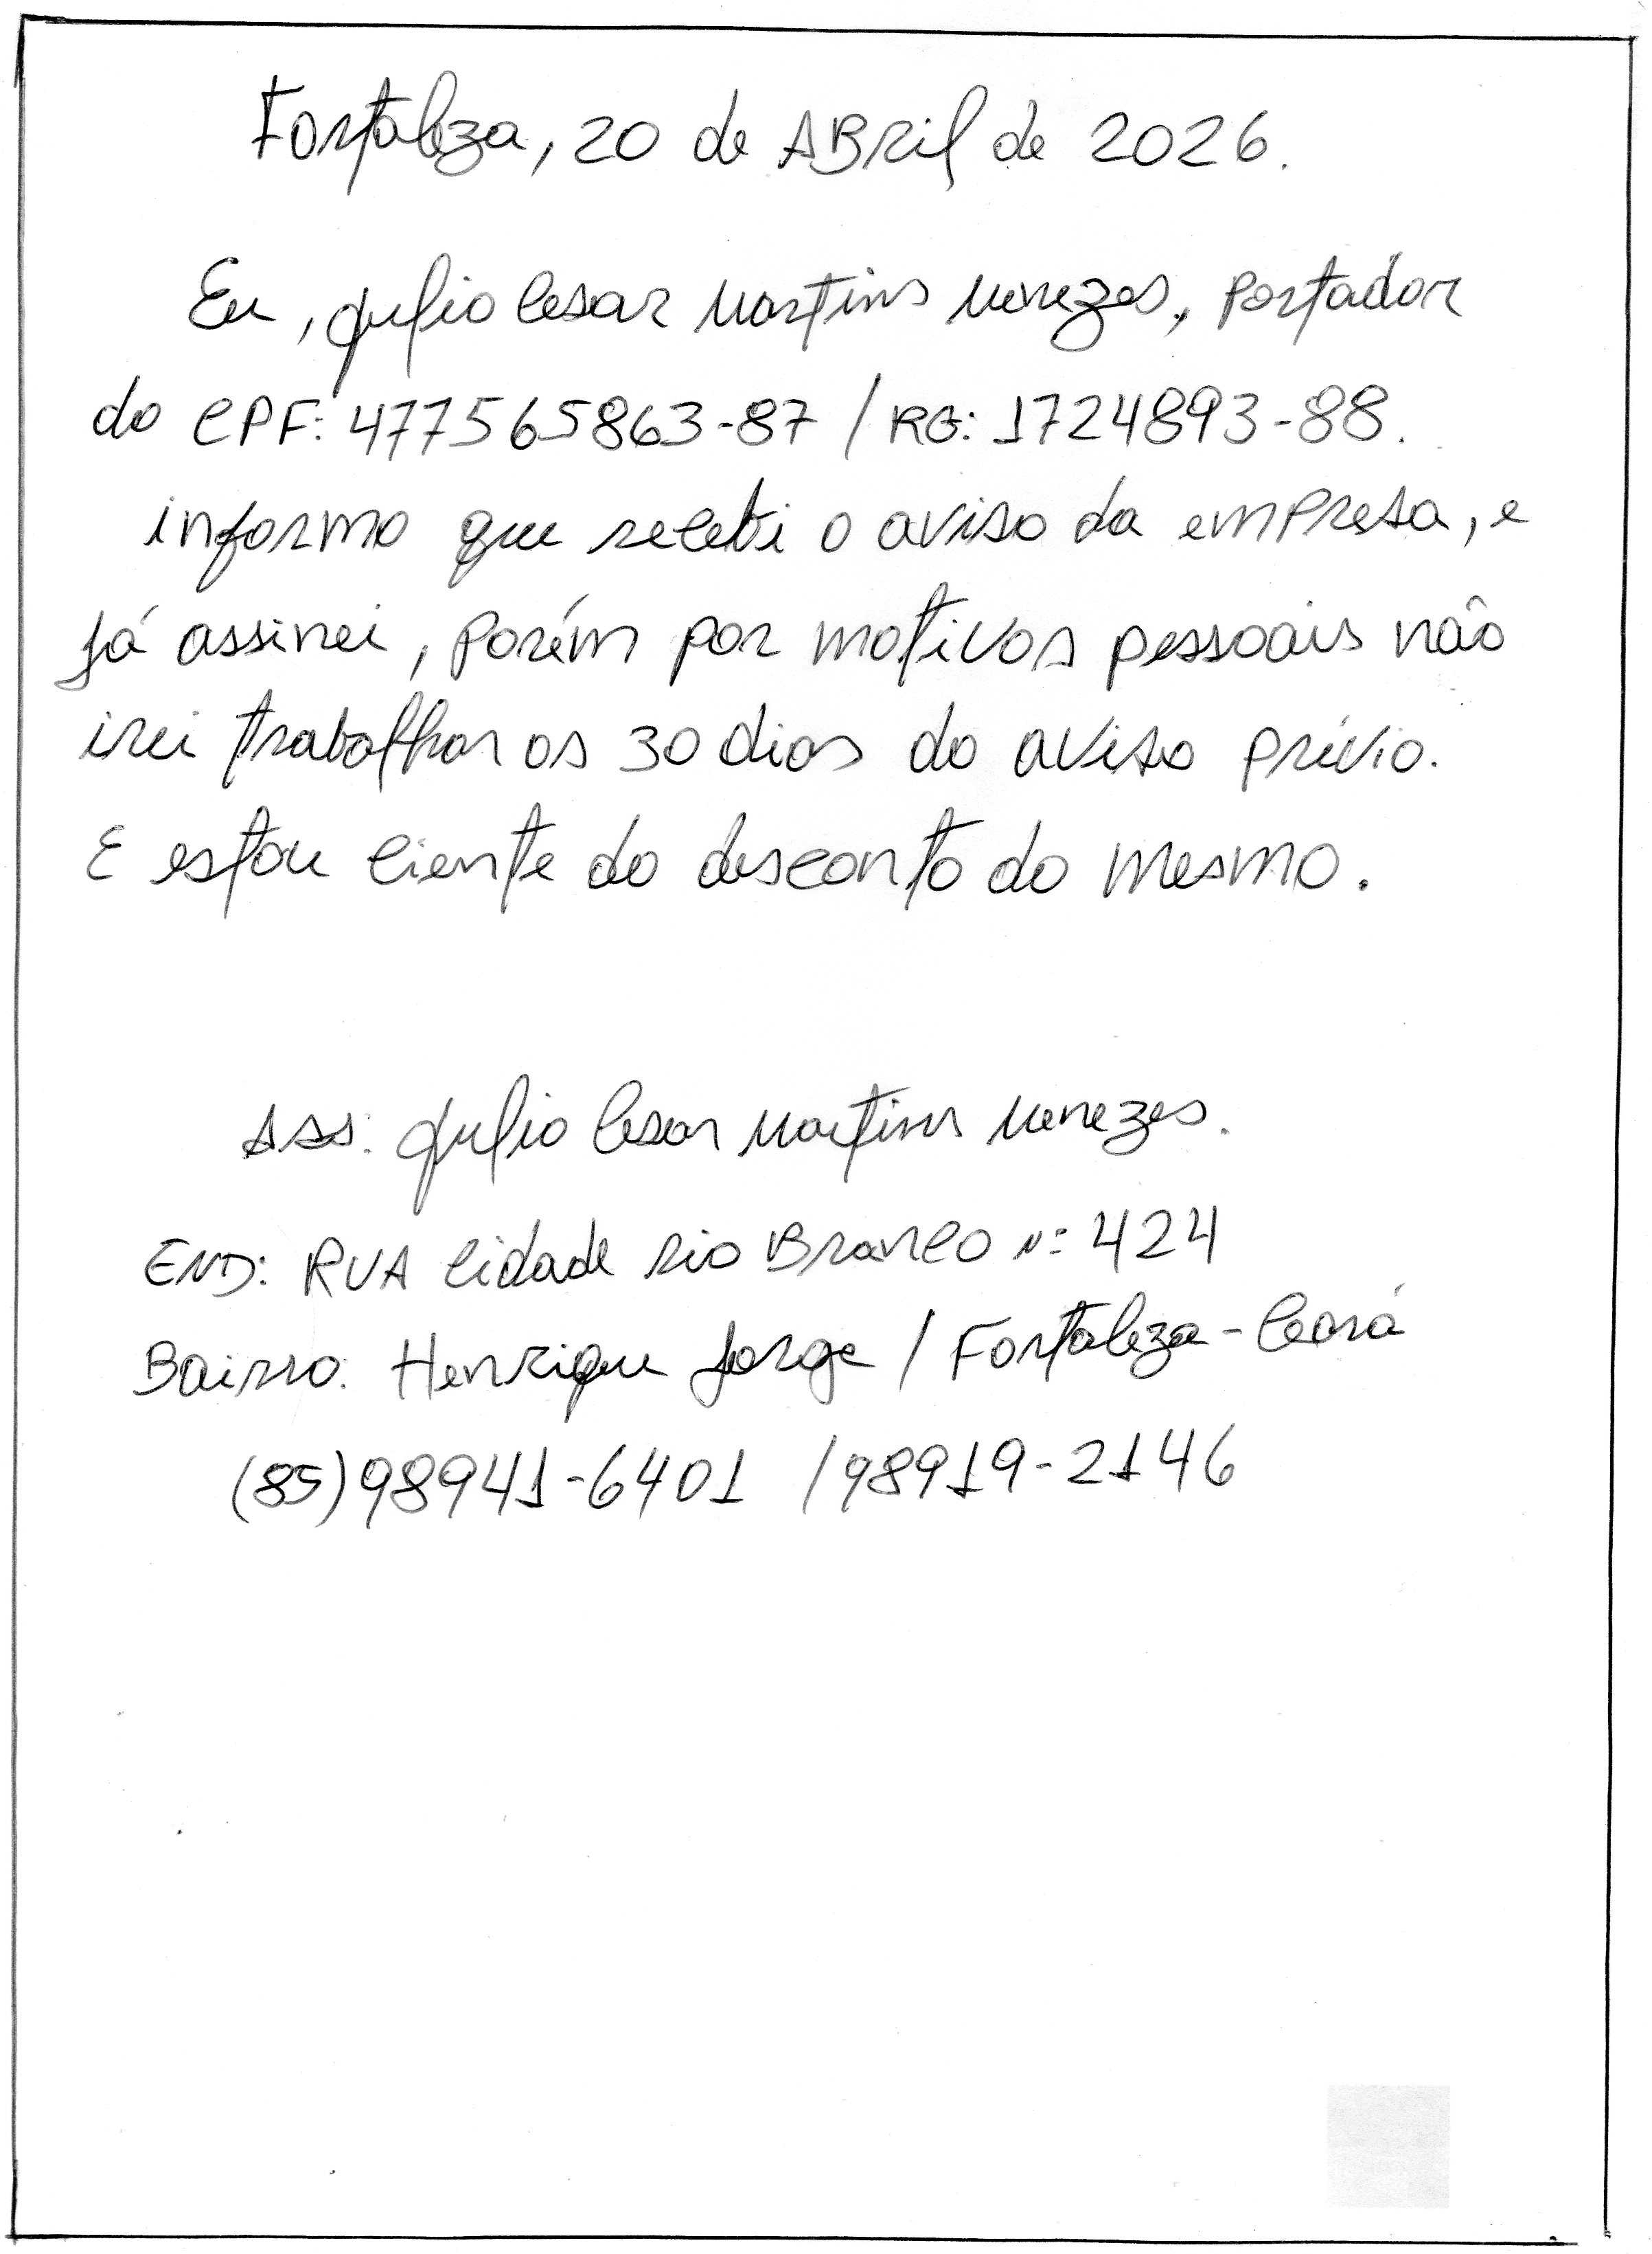 Fortaleza, 20 de ABRil de 2026.
Eu, Julio Cesar Martins Menezes, Portador
do CPF: 477565863-87 / RG: 1724893-88.
informo que recebi o aviso da empresa, e
já assinei, porém por motivos pessoais não
irei trabalhar os 30 dias do aviso prévio.
E estou ciente do desconto do mesmo.
Ass: Julio Cesar Martins Menezes.
END: RUA Cidade Rio Branco N: 424
Bairro: Henrique Jorge / Fortaleza - Ceará
(85) 98941-6401 / 98919-2146